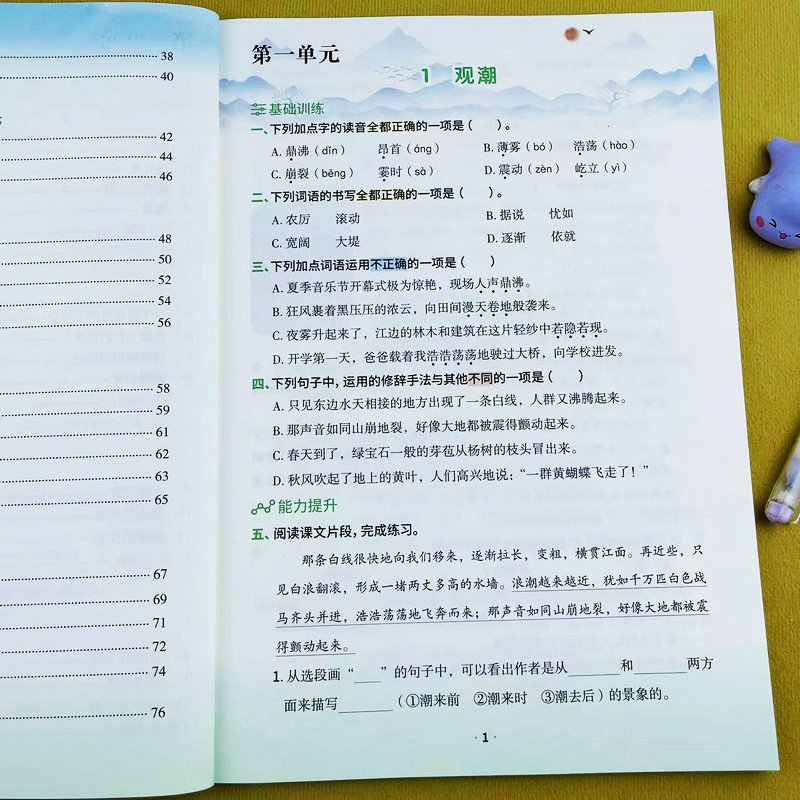 38
40
42
44
46
48
50
52
54
56
58
59
61
62
63
65
67
69
71
72
74
76
第一单元
1 观潮
基础训练
一、下列加点字的读音全都正确的一项是（ ）。
A. 鼎沸（dǐn） 昂首（áng） B. 薄雾（bó） 浩荡（hào）
C. 崩裂（bēng） 霎时（sà） D. 震动（zèn） 屹立（yì）
二、下列词语的书写全都正确的一项是（ ）。
A. 农厉 滚动 B. 据说 忧如
C. 宽阔 大堤 D. 逐渐 依就
三、下列加点词语运用不正确的一项是（ ）
A. 夏季音乐节开幕式极为惊艳，现场人声鼎沸。
B. 狂风裹着黑压压的浓云，向田间漫天卷地般袭来。
C. 夜雾升起来了，江边的林木和建筑在这片轻纱中若隐若现。
D. 开学第一天，爸爸载着我浩浩荡荡地驶过大桥，向学校进发。
四、下列句子中，运用的修辞手法与其他不同的一项是（ ）
A. 只见东边水天相接的地方出现了一条白线，人群又沸腾起来。
B. 那声音如同山崩地裂，好像大地都被震得颤动起来。
C. 春天到了，绿宝石一般的芽苞从杨树的枝头冒出来。
D. 秋风吹起了地上的黄叶，人们高兴地说：“一群黄蝴蝶飞走了！”
能力提升
五、阅读课文片段，完成练习。
那条白线很快地向我们移来，逐渐拉长，变粗，横贯江面。再近些，只
见白浪翻滚，形成一堵两丈多高的水墙。浪潮越来越近，犹如千万匹白色战
马齐头并进，浩浩荡荡地飞奔而来；那声音如同山崩地裂，好像大地都被震
得颤动起来。
1. 从选段画“___”的句子中，可以看出作者是从______和______两方
面来描写______（①潮来前 ②潮来时 ③潮去后）的景象的。
· 1 ·